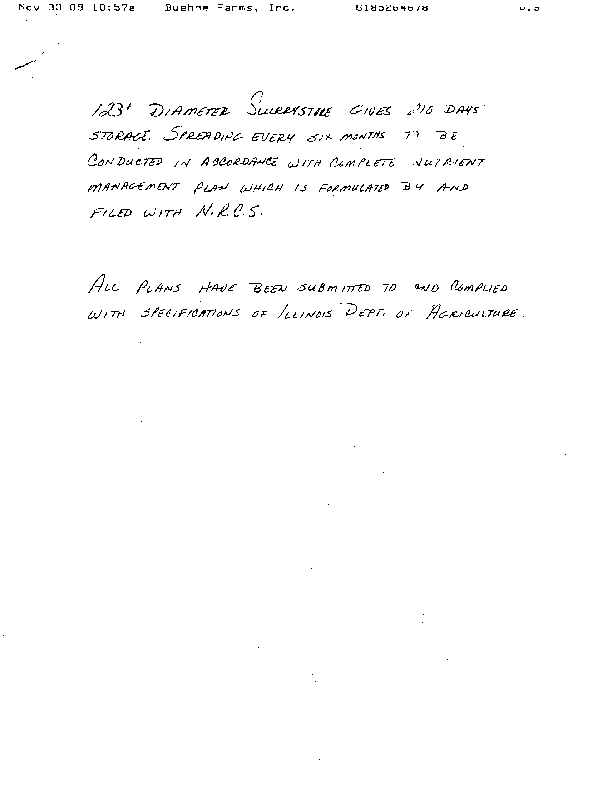 Nov 30 09 10:57a Buehne Farms, Inc. 6185264678
123' DIAMETER SLURRYSTORE GIVES DAYS
STORAGE. SPREADING EVERY SIX MONTHS TO BE
CONDUCTED IN ACCORDANCE WITH COMPLETE NUTRIENT
MANAGEMENT PLAN WHICH IS FORMULATED BY AND
FILED WITH N.R.C.S.
ALL PLANS HAVE BEEN SUBMITTED TO AND COMPLIED
WITH SPECIFICATIONS OF ILLINOIS DEPT. OF AGRICULTURE.